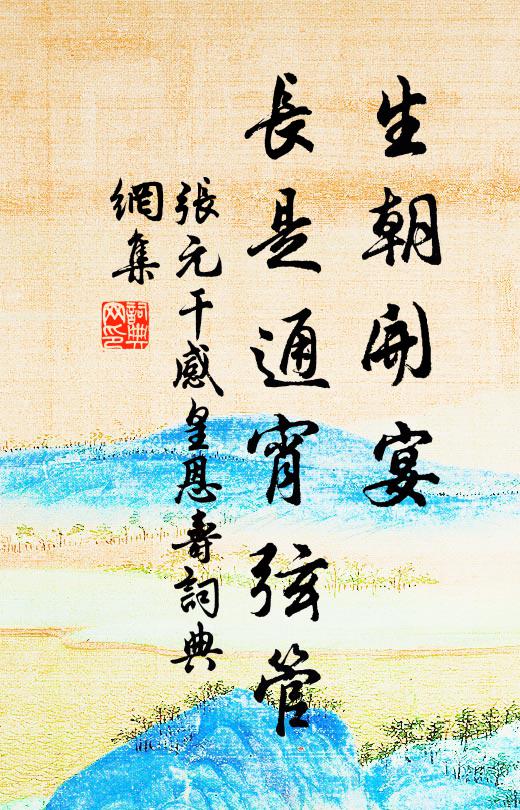 生朝開宴
長是通宵弦管
張元干感皇恩壽詞典
網集
詞典
網印